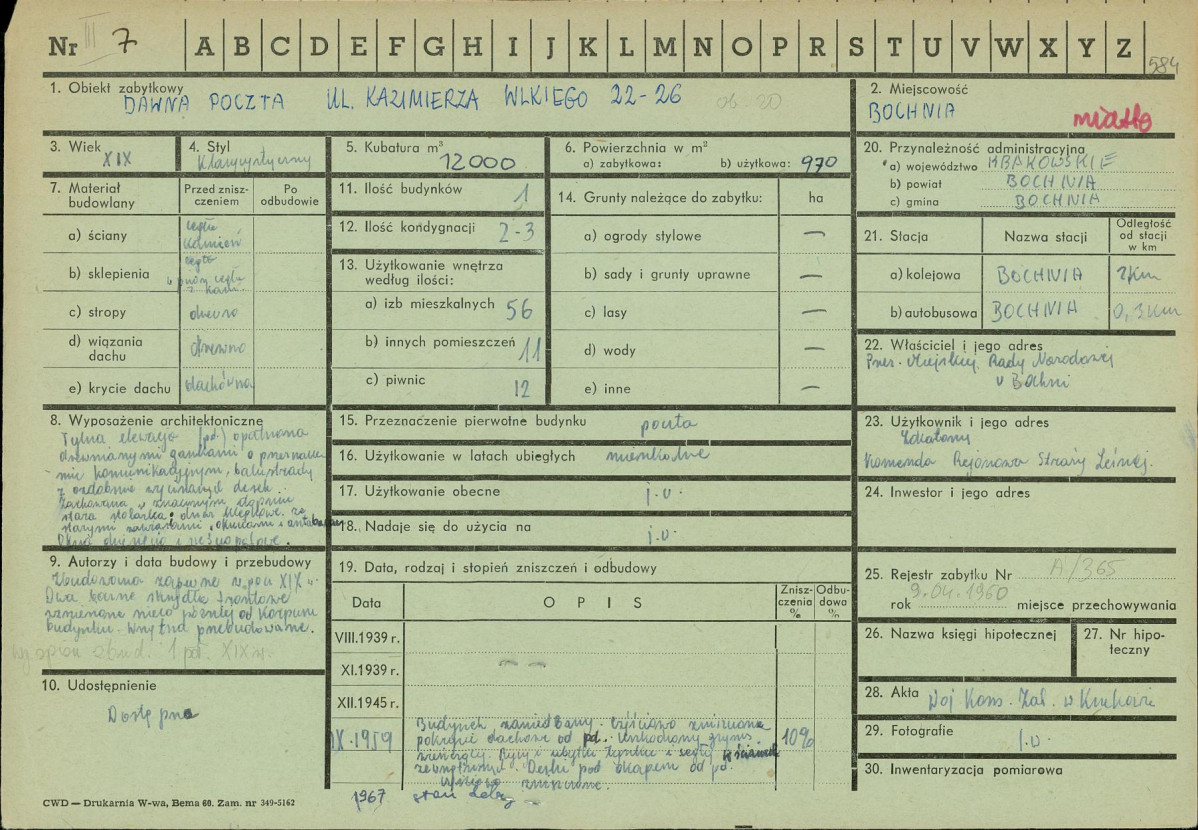 Nr III 7 A B C D E F G H I J K L M N O P R S T U V W X Y Z 584
1. Obiekt zabytkowy
DAWNA POCZTA UL. KAZIMIERZA WLKIEGO 22-26 ob. 20
2. Miejscowość
BOCHNIA miasto
3. Wiek
XIX
4. Styl
Klasycystyczny
5. Kubatura m³
12000
6. Powierzchnia w m²
a) zabytkowa: b) użytkowa: 970
20. Przynależność administracyjna
a) województwo KRAKOWSKIE
b) powiat BOCHNIA
c) gmina BOCHNIA
7. Materiał budowlany
Przed zniszczeniem
Po odbudowie
a) ściany cegła kamień
b) sklepienia cegła
c) stropy drewno
d) wiązania dachu drewno
e) krycie dachu dachówka
11. Ilość budynków 1
12. Ilość kondygnacji 2-3
13. Użytkowanie wnętrza według ilości:
a) izb mieszkalnych 56
b) innych pomieszczeń 11
c) piwnic 12
14. Grunty należące do zabytku: ha
a) ogrody stylowe —
b) sady i grunty uprawne —
c) lasy —
d) wody —
e) inne —
21. Stacja Nazwa stacji Odległość od stacji w km
a) kolejowa BOCHNIA 2km
b) autobusowa BOCHNIA 0,3km
22. Właściciel i jego adres
Prez. Miejskiej Rady Narodowej
w Bochni
8. Wyposażenie architektoniczne
Tylna elewacja (pd.) opatrzona
drewnianymi gankami o przeznacze-
niu komunikacyjnym, balustrady
z ozdobnie wycinanych desek.
Zachowana w znacznym stopniu
stara stolarka, drzwi klepkowe ze
starymi zawiasami, okuciami i antabami.
15. Przeznaczenie pierwotne budynku poczta
16. Użytkowanie w latach ubiegłych mieszkalne
17. Użytkowanie obecne j.w.
18. Nadaje się do użycia na j.w.
23. Użytkownik i jego adres
Komenda Rejonowa Straży Leśnej.
24. Inwestor i jego adres
9. Autorzy i data budowy i przebudowy
Zbudowana zapewne w pocz XIX w.
Dwa boczne skrzydła frontowe
wzniesione nieco później od korpusu
budynku. Wnętrza przebudowane.
1 poł. XIX w.
10. Udostępnienie
Dostępna
19. Data, rodzaj i stopień zniszczeń i odbudowy
Data OPIS Zniszczenia % Odbudowa %
VIII.1939 r.
XI.1939 r.
XII.1945 r.
IX.1959 Budynek zaniedbany. Częściowo zniszczone 10%
pokrycie dachowe od pd. Uszkodzony gzyms
wieńczący. Rysy i ubytki tynków i cegły w ścianach
zewnętrznych. Deski pod okapem od pd.
częściowo zniszczone.
1967 stan dobry
25. Rejestr zabytku Nr A/365
rok 9.04.1960 miejsce przechowywania
26. Nazwa księgi hipotecznej
27. Nr hipoteczny
28. Akta Woj. Kons. Zab. w Krakowie
29. Fotografie j.w.
30. Inwentaryzacja pomiarowa
CWD — Drukarnia W-wa, Bema 60. Zam. nr 349-5162